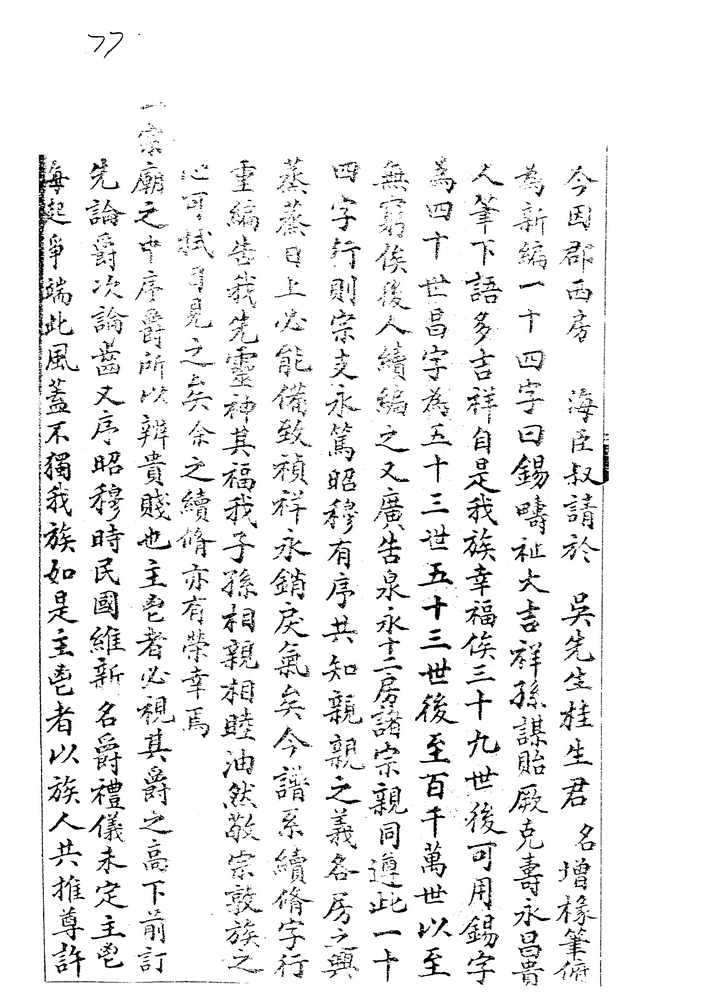 77
今因郡西房 海臣叔請於 吳先生桂生君名增椽筆俯
為新編一十四字曰錫疇祉大吉祥孫謀貽厥克壽永昌貴
人筆下語多吉祥自是我族幸福俟三十九世後可用錫字
為四十世昌字為五十三世五十三世後至百千萬世以至
無窮俟後人續編之又廣告泉永十二房諸宗親同遵此一十
四字行則宗支永篤昭穆有序共知親親之義各房之興
蒸蒸日上必能備致禎祥永銷戾氣矣今譜系續脩字行
重編告我先靈神其福我子孫相親相睦油然敬宗敦族之
心可拭目見之矣余之續脩亦有榮幸焉
一宗廟之中序爵所以辨貴賤也主鬯者必視其爵之高下前訂
先論爵次論齒又序昭穆時民國維新名爵禮儀未定主鬯
每起爭端此風蓋不獨我族如是主鬯者以族人共推尊許